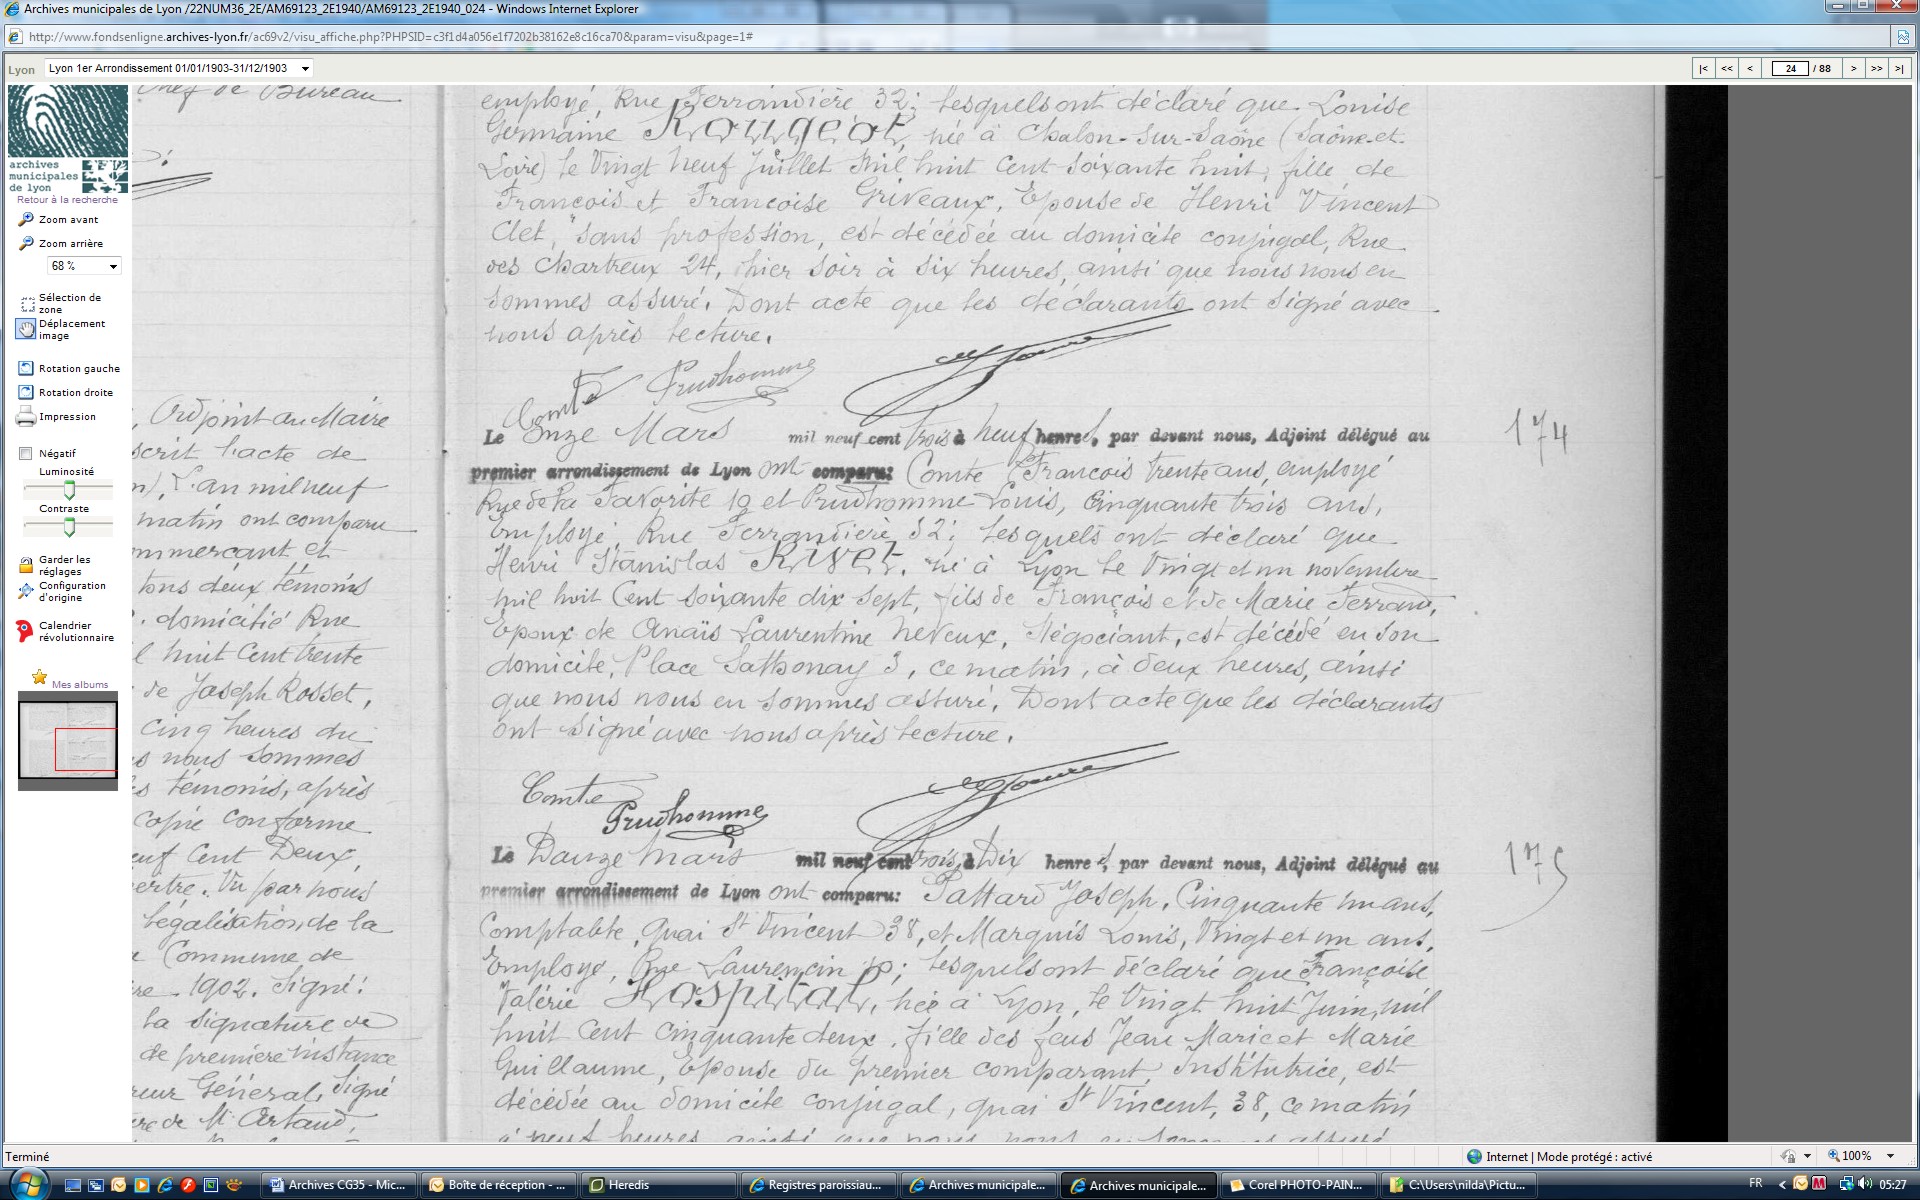 Archives municipales de Lyon /22NUM36_2E/AM69123_2E1940/AM69123_2E1940_024 - Windows Internet Explorer
http://www.fondsenligne.archives-lyon.fr/ac69v2/visu_affiche.php?PHPSID=c3f1d4a056e1f7202b38162e8c16ca70&param=visu&page=1#
Lyon Lyon 1er Arrondissement 01/01/1903-31/12/1903
|< << < 24 / 88 > >> >|
archives
municipales
de lyon
Retour à la recherche
Zoom avant
Zoom arrière
68 %
Sélection de
zone
Déplacement
image
Rotation gauche
Rotation droite
Impression
Négatif
Luminosité
Contraste
Garder les
réglages
Configuration
d'origine
Calendrier
révolutionnaire
Mes albums
Chef de Bureau
, Adjoint au Maire
scrit l'acte de
n), L'an mil neuf
matin ont comparu
mmerçant et
tons deux témoins
domicilié Rue
l huit cent trente
de Joseph Rosset,
cinq heures du
s nous sommes
s témoins, après
copie conforme
euf Cent Deux,
ertre. Vu par nous
légalisation de la
Commune de
re 1902. Signé:
la signature de
de première instance
reur Général, Signé
re de M. Artaud,
employé, Rue Ferrandière 32; lesquels ont déclaré que Louise
Germaine Rougeot, née à Chalon-sur-Saône (Saône-et-
Loire) le Vingt neuf Juillet mil huit cent soixante huit, fille de
François et Françoise Griveaux, Epouse de Henri Vincent
Clet, sans profession, est décédée au domicile conjugal, Rue
des Chartreux 24, hier soir à six heures, ainsi que nous nous en
sommes assuré. Dont acte que les déclarants ont signé avec
nous après lecture.
Comte Prudhomme
174
Le Onze Mars mil neuf cent trois à neuf heures, par devant nous, Adjoint délégué au
premier arrondissement de Lyon ont comparu: Comte François trente ans, employé
Rue de la Favorite 10 et Prudhomme Louis, Cinquante trois ans,
Employé, Rue Ferrandière 32; lesquels ont déclaré que
Henri Stanislas Rivet, né à Lyon le Vingt et un novembre
mil huit Cent soixante dix sept, fils de François et de Marie Ferrand,
Epoux de Anaïs Laurentine Neveux, Négociant, est décédé en son
domicile, Place Sathonay 3, ce matin, à deux heures, ainsi
que nous nous en sommes assuré, Dont acte que les déclarants
ont signé avec nous après lecture.
Comte
Prudhomme
175
Le Douze Mars mil neuf cent trois, à Dix heures, par devant nous, Adjoint délégué au
premier arrondissement de Lyon ont comparu: Joseph, Cinquante un ans,
Comptable, quai St Vincent 38, et Marquis Louis, Vingt et un ans,
Employé, Rue Laurencin 10; lesquels ont déclaré que Françoise
Valérie Hospital, née à Lyon, le Vingt huit Juin, mil
huit cent cinquante deux, fille des feus Jean Marie et Marie
Guillaume, Epouse du premier comparant, Institutrice, est
décédée au domicile conjugal, quai St Vincent, 38, ce matin
à neuf heures, ainsi que nous nous en sommes assuré
Terminé
Internet | Mode protégé : activé
100%
Archives CG35 - Mic...
Boîte de réception - ...
Heredis
Registres paroissiau...
Archives municipale...
Archives municipale...
Corel PHOTO-PAIN...
C:\Users\nilda\Pictu...
FR
05:27